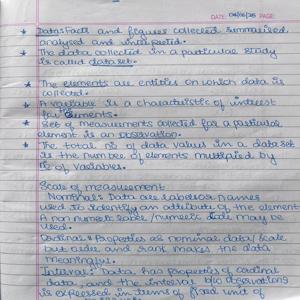 DATE: 04/06/25 PAGE:
★ Data: Facts and figures collected summarised
analysed and interpreted.
★ The data collected in a particular study
is called data set.
★ The elements are entities on which data is
collected.
★ A variable is a characteristic of interest
for elements.
★ Set of measurements collected for a particular
element is an observation.
★ The total no of data values in a data set
is the number of elements multiplied by
no of variables.
Scale of measurement
Nominal: Data are labels or names
used to identify an attribute of the element
A non numeric label / numeric code may be
used.
Ordinal: Properties as nominal data/scale
but order and rank makes the data
meaningful.
Interval: Data has properties of ordinal
data, and the interval b/w observations
is expressed in terms of fixed unit of